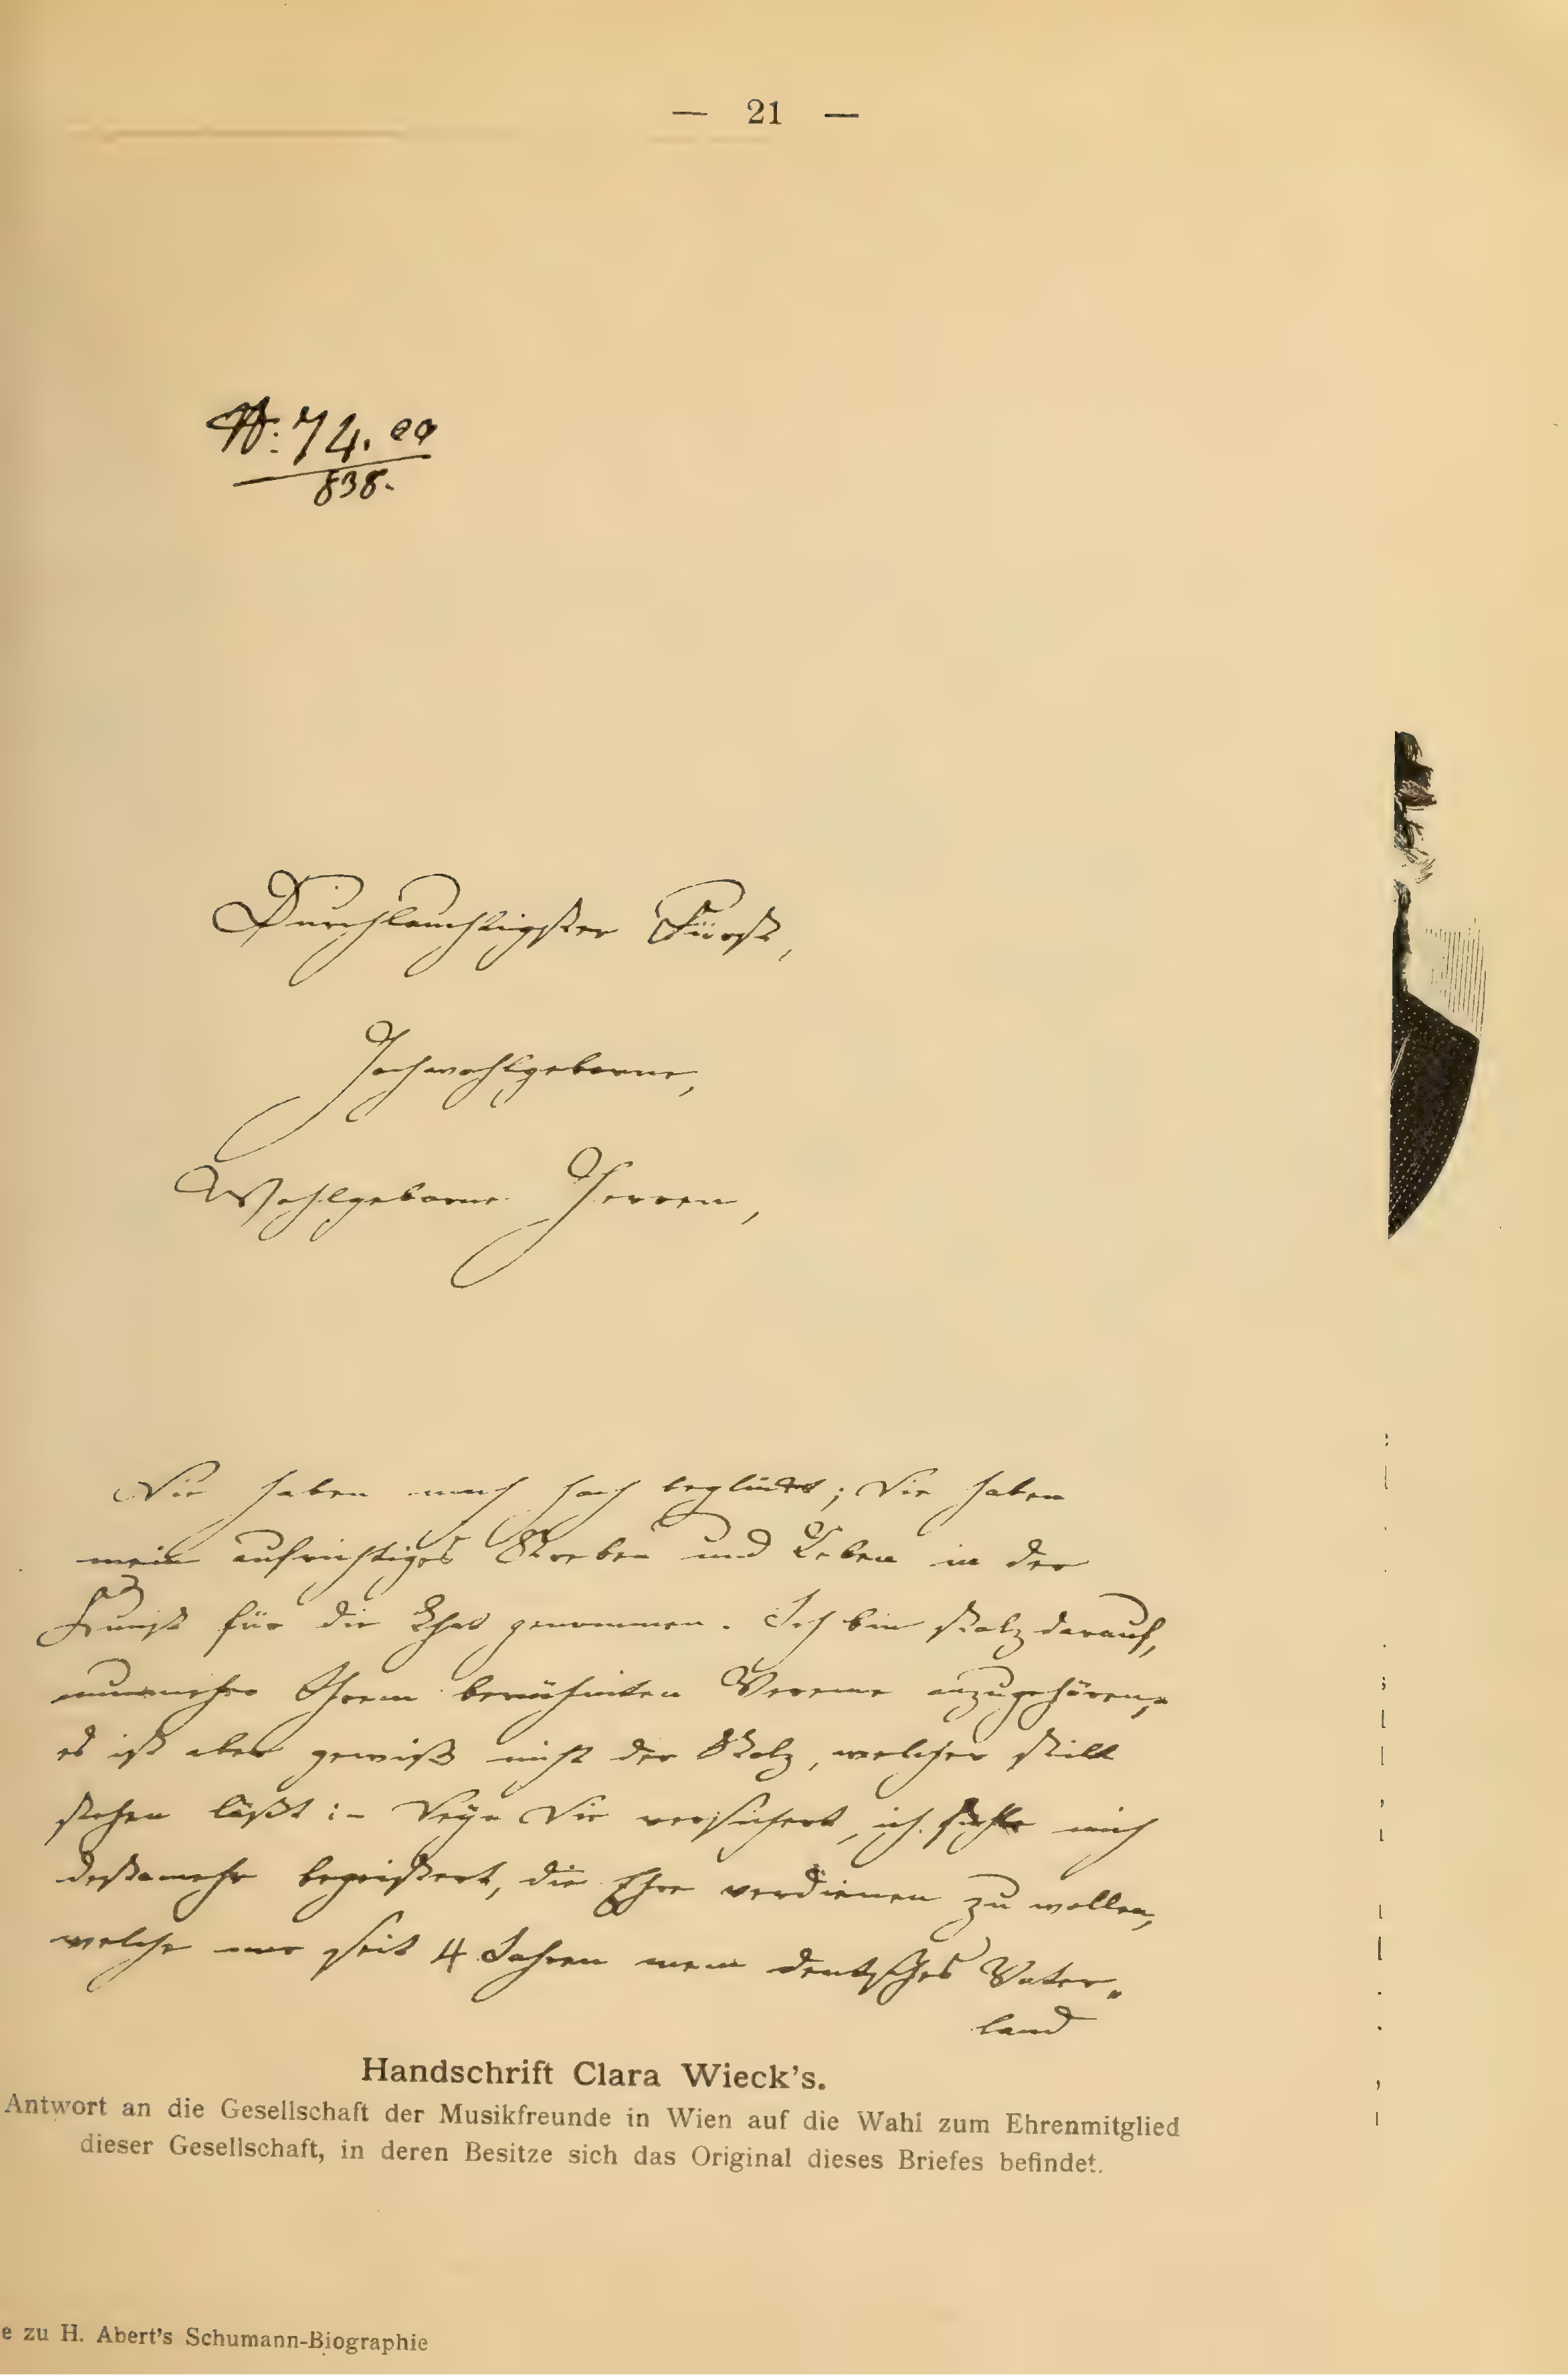 — 21 —
No: 74.
838.
Durchlauchtigster Fürst,
Hochwohlgeborne,
Wohlgeborne Herren,
Sie haben mich hoch beglückt; Sie haben
mein aufrichtiges Streben und Leben in der
Kunst für die That genommen. Ich bin stolz darauf,
nunmehr Ihrem berühmten Vereine anzugehören,
es ist aber gewiß nicht der Stolz, welcher still
stehen läßt:- Seyn Sie versichert, ich fühle mich
destomehr begeistert, die Ehre verdienen zu wollen,
welche mir seit 4 Jahren mein deutsches Vater„
land
Handschrift Clara Wieck's.
Antwort an die Gesellschaft der Musikfreunde in Wien auf die Wahl zum Ehrenmitglied
dieser Gesellschaft, in deren Besitze sich das Original dieses Briefes befindet.
e zu H. Abert's Schumann-Biographie